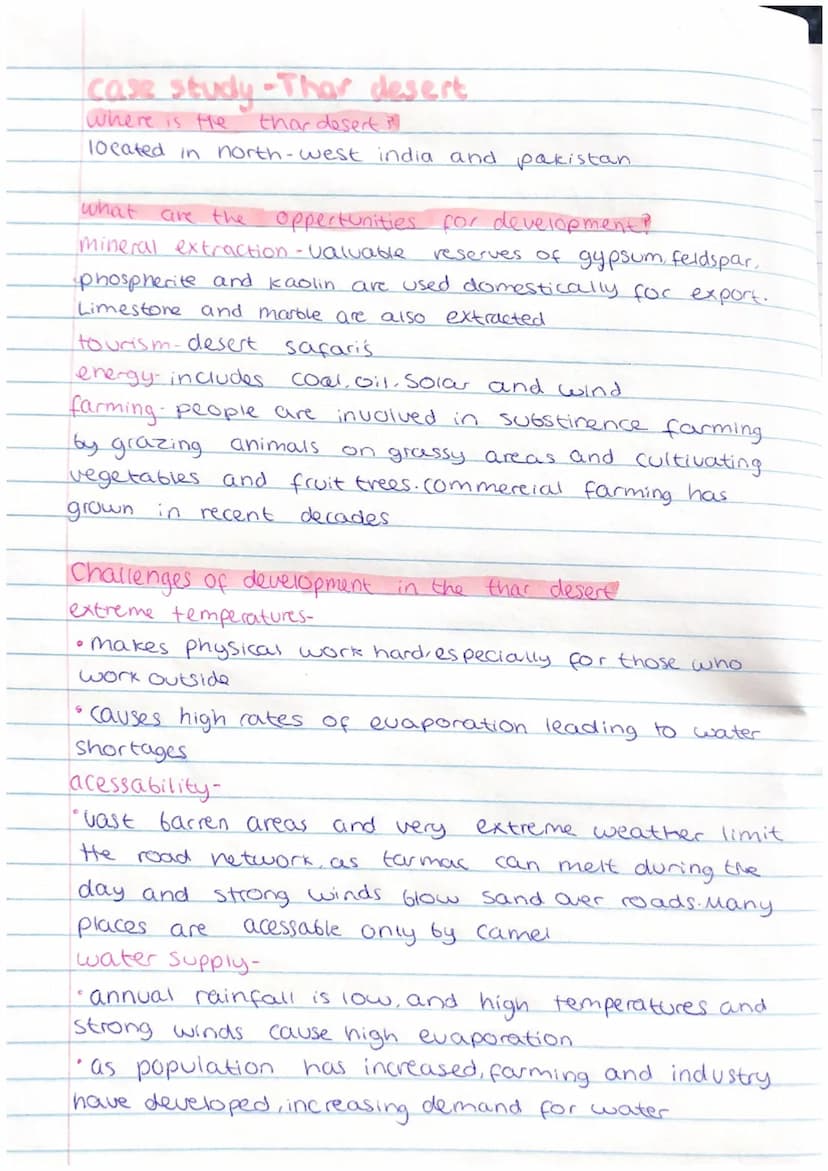 case study - Thar desert
where is the thar desert?
located in north-west india and pakistan
what are the oppertunities for development?
mineral extraction - valuable reserves of gypsum, feldspar,
phospherite and kaolin are used domestically for export.
Limestone and marble are also extracted
tourism - desert safaris
energy - includes coal, oil, solar and wind
farming - people are involved in substinence farming
by grazing animals on grassy areas and cultivating
vegetables and fruit trees. commercial farming has
grown in recent decades
Challenges of development in the thar desert
extreme temperatures-
• makes physical work hard, especially for those who
work outside
• causes high rates of evaporation leading to water
shortages
acessability-
• vast barren areas and very extreme weather limit
the road network, as tarmac can melt during the
day and strong winds blow sand over roads. Many
places are acessable only by camel
water supply-
• annual rainfall is low, and high temperatures and
strong winds cause high evaporation
• as population has increased, farming and industry
have developed, increasing demand for water